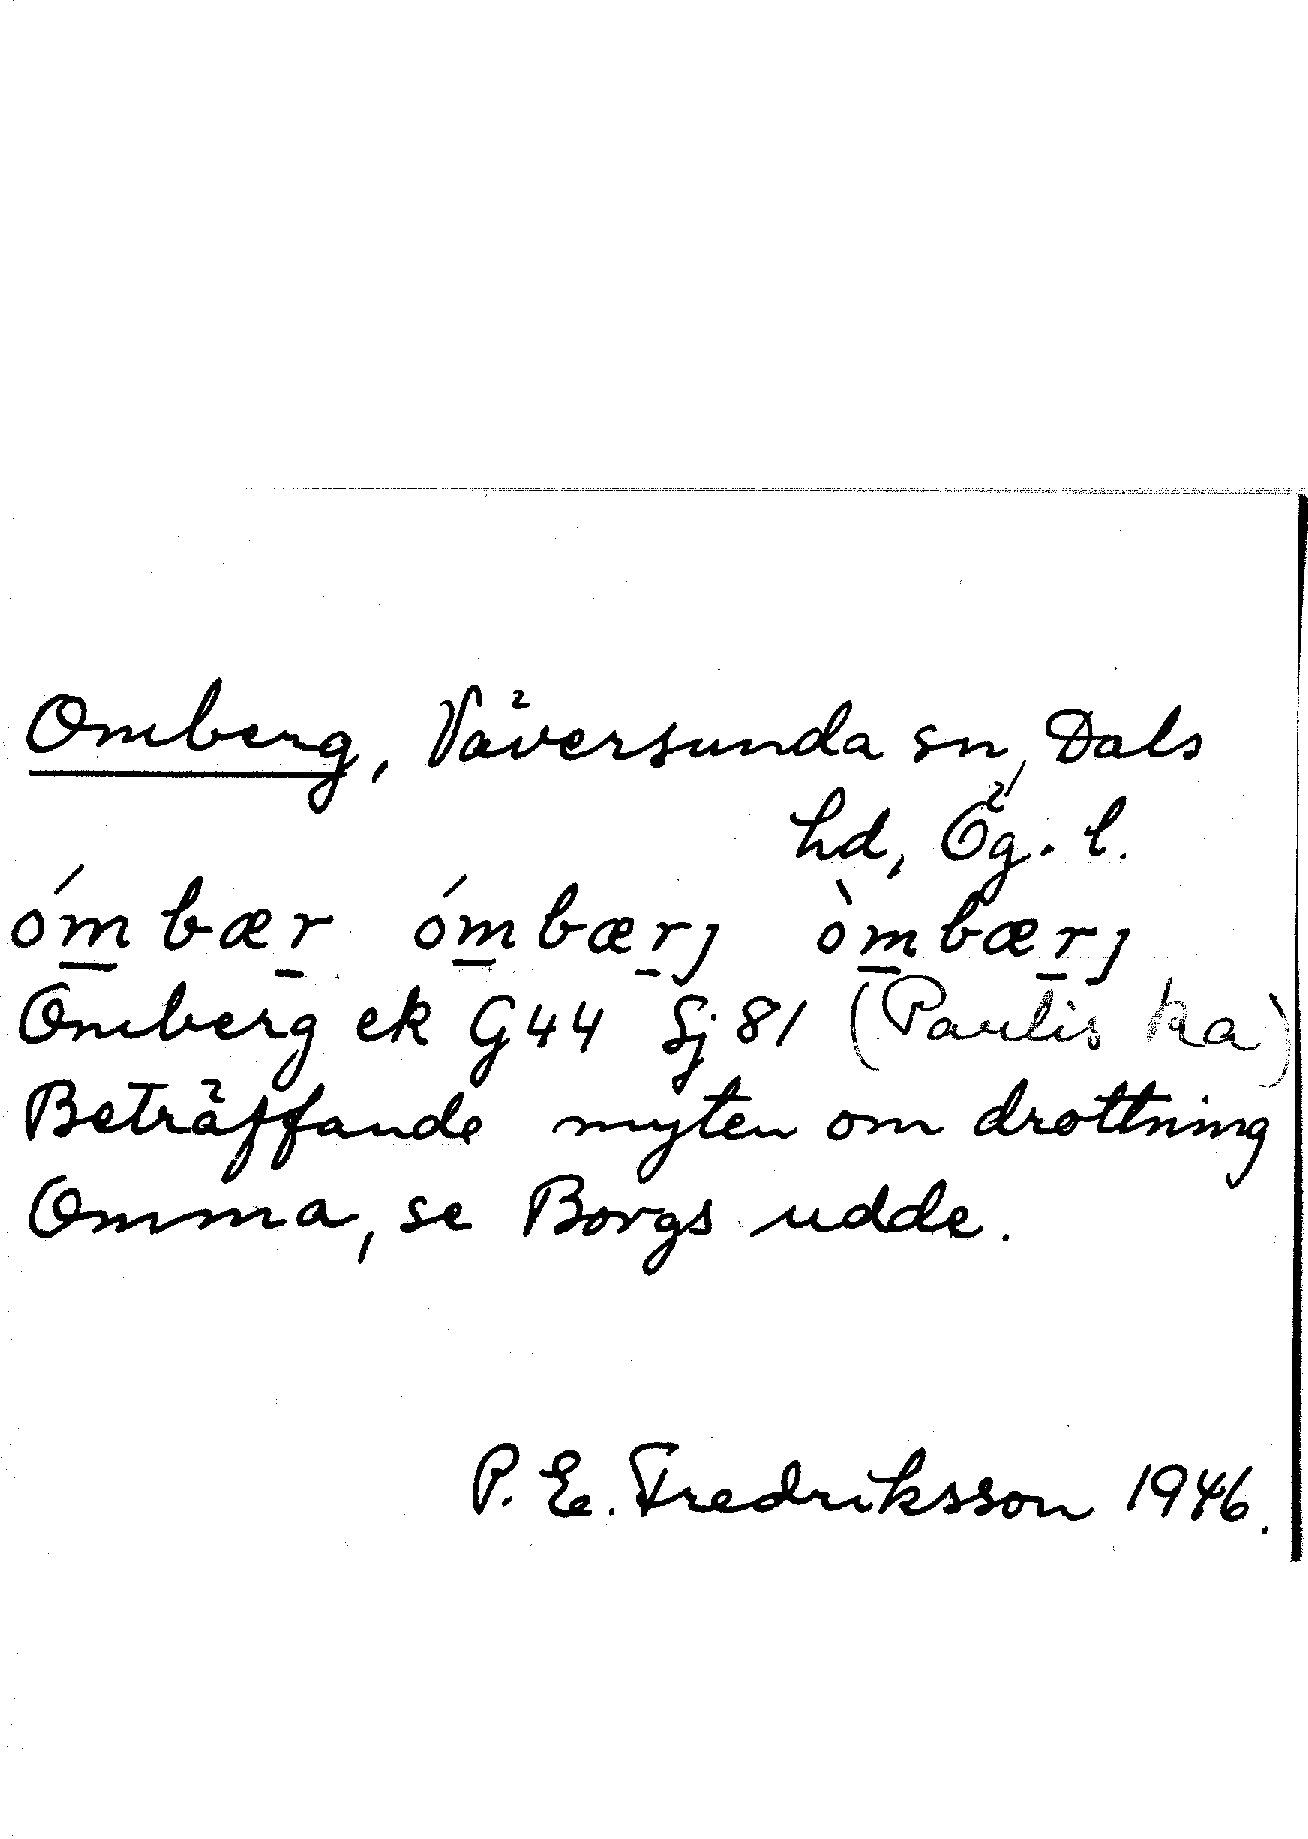 Omberg, Väversunda sn, Dals
hd, Ög. l.
óm̲bær̲ óm̲bær̲j òm̲bær̲j
Omberg ek G44 Sj 81 (Paulis ka)
Beträffande myten om drottning
Omma, se Borgs udde.
P. E. Fredriksson 1946.